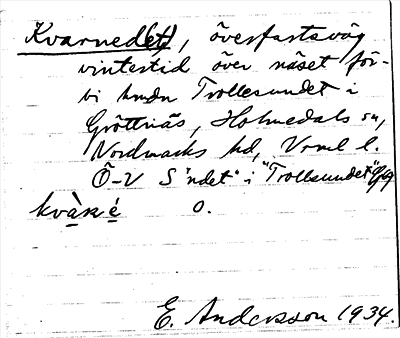 Kvarned(et), överfartsväg
vintertid över näset för-
bi kmdn Trollesundet i
Gröttnäs, Holmedals sn,
Nordmarks hd, Vrml l.
Ö-V S 'ndet' i "Trollsundet"
kvà̱ṇé̱ o.
E. Andersson 1934.